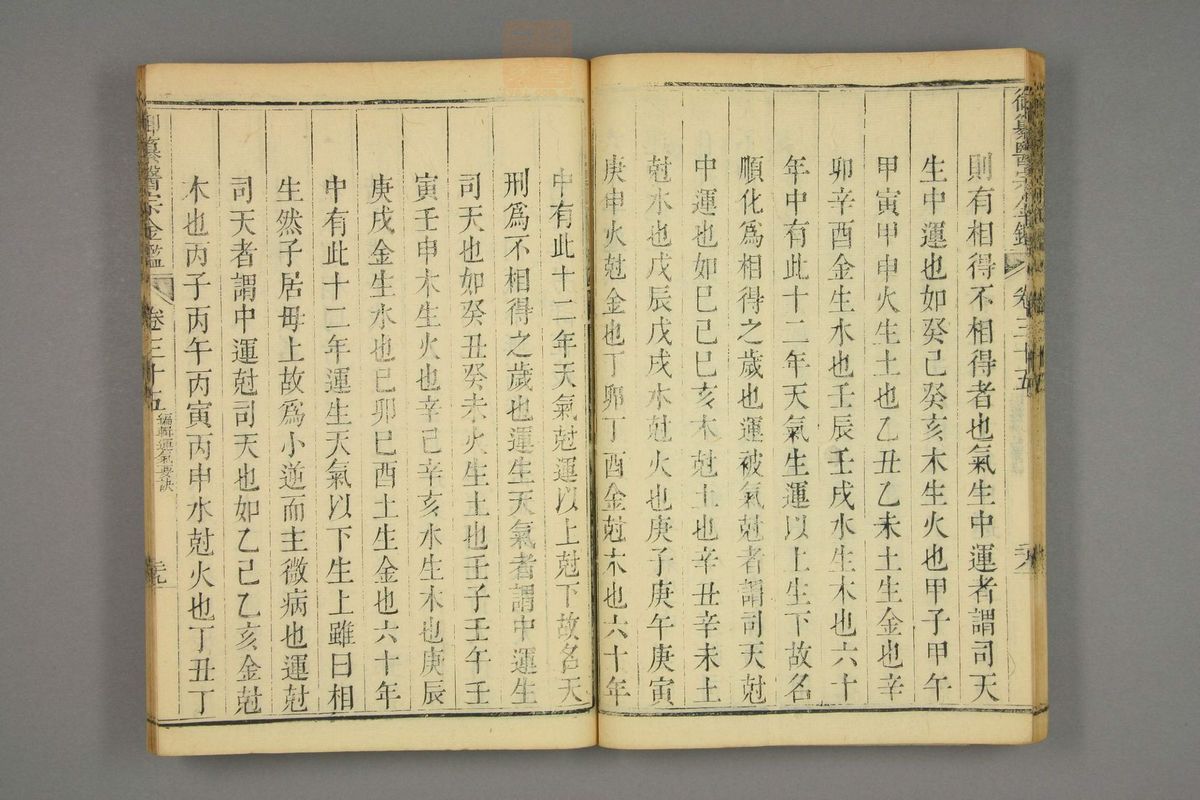 御纂醫宗金鑑 卷三十五
則有相得不相得者也氣生中運者謂司天
生中運也如癸己癸亥木生火也甲子甲午
甲寅甲申火生土也乙丑乙未土生金也辛
卯辛酉金生水也壬辰壬戌水生木也六十
年中有此十二年天氣生運以上生下故名
順化爲相得之歲也運被氣尅者謂司天尅
中運也如巳己巳亥木尅土也辛丑辛未土
尅水也戊辰戊戌水尅火也庚子庚午庚寅
庚申火尅金也丁卯丁酉金尅木也六十年
中有此十二年天氣尅運以上尅下故名天
刑爲不相得之歲也運生天氣者謂中運生
司天也如癸丑癸未火生土也壬子壬午壬
寅壬申木生火也辛己辛亥水生木也庚辰
庚戌金生水也巳卯巳酉土生金也六十年
中有此十二年運生天氣以下生上雖曰相
生然子居母上故爲小逆而主微病也運尅
司天者謂中運尅司天也如乙己乙亥金尅
木也丙子丙午丙寅丙申水尅火也丁丑丁
御纂醫宗金鑑 卷三十五 編輯運氣要訣